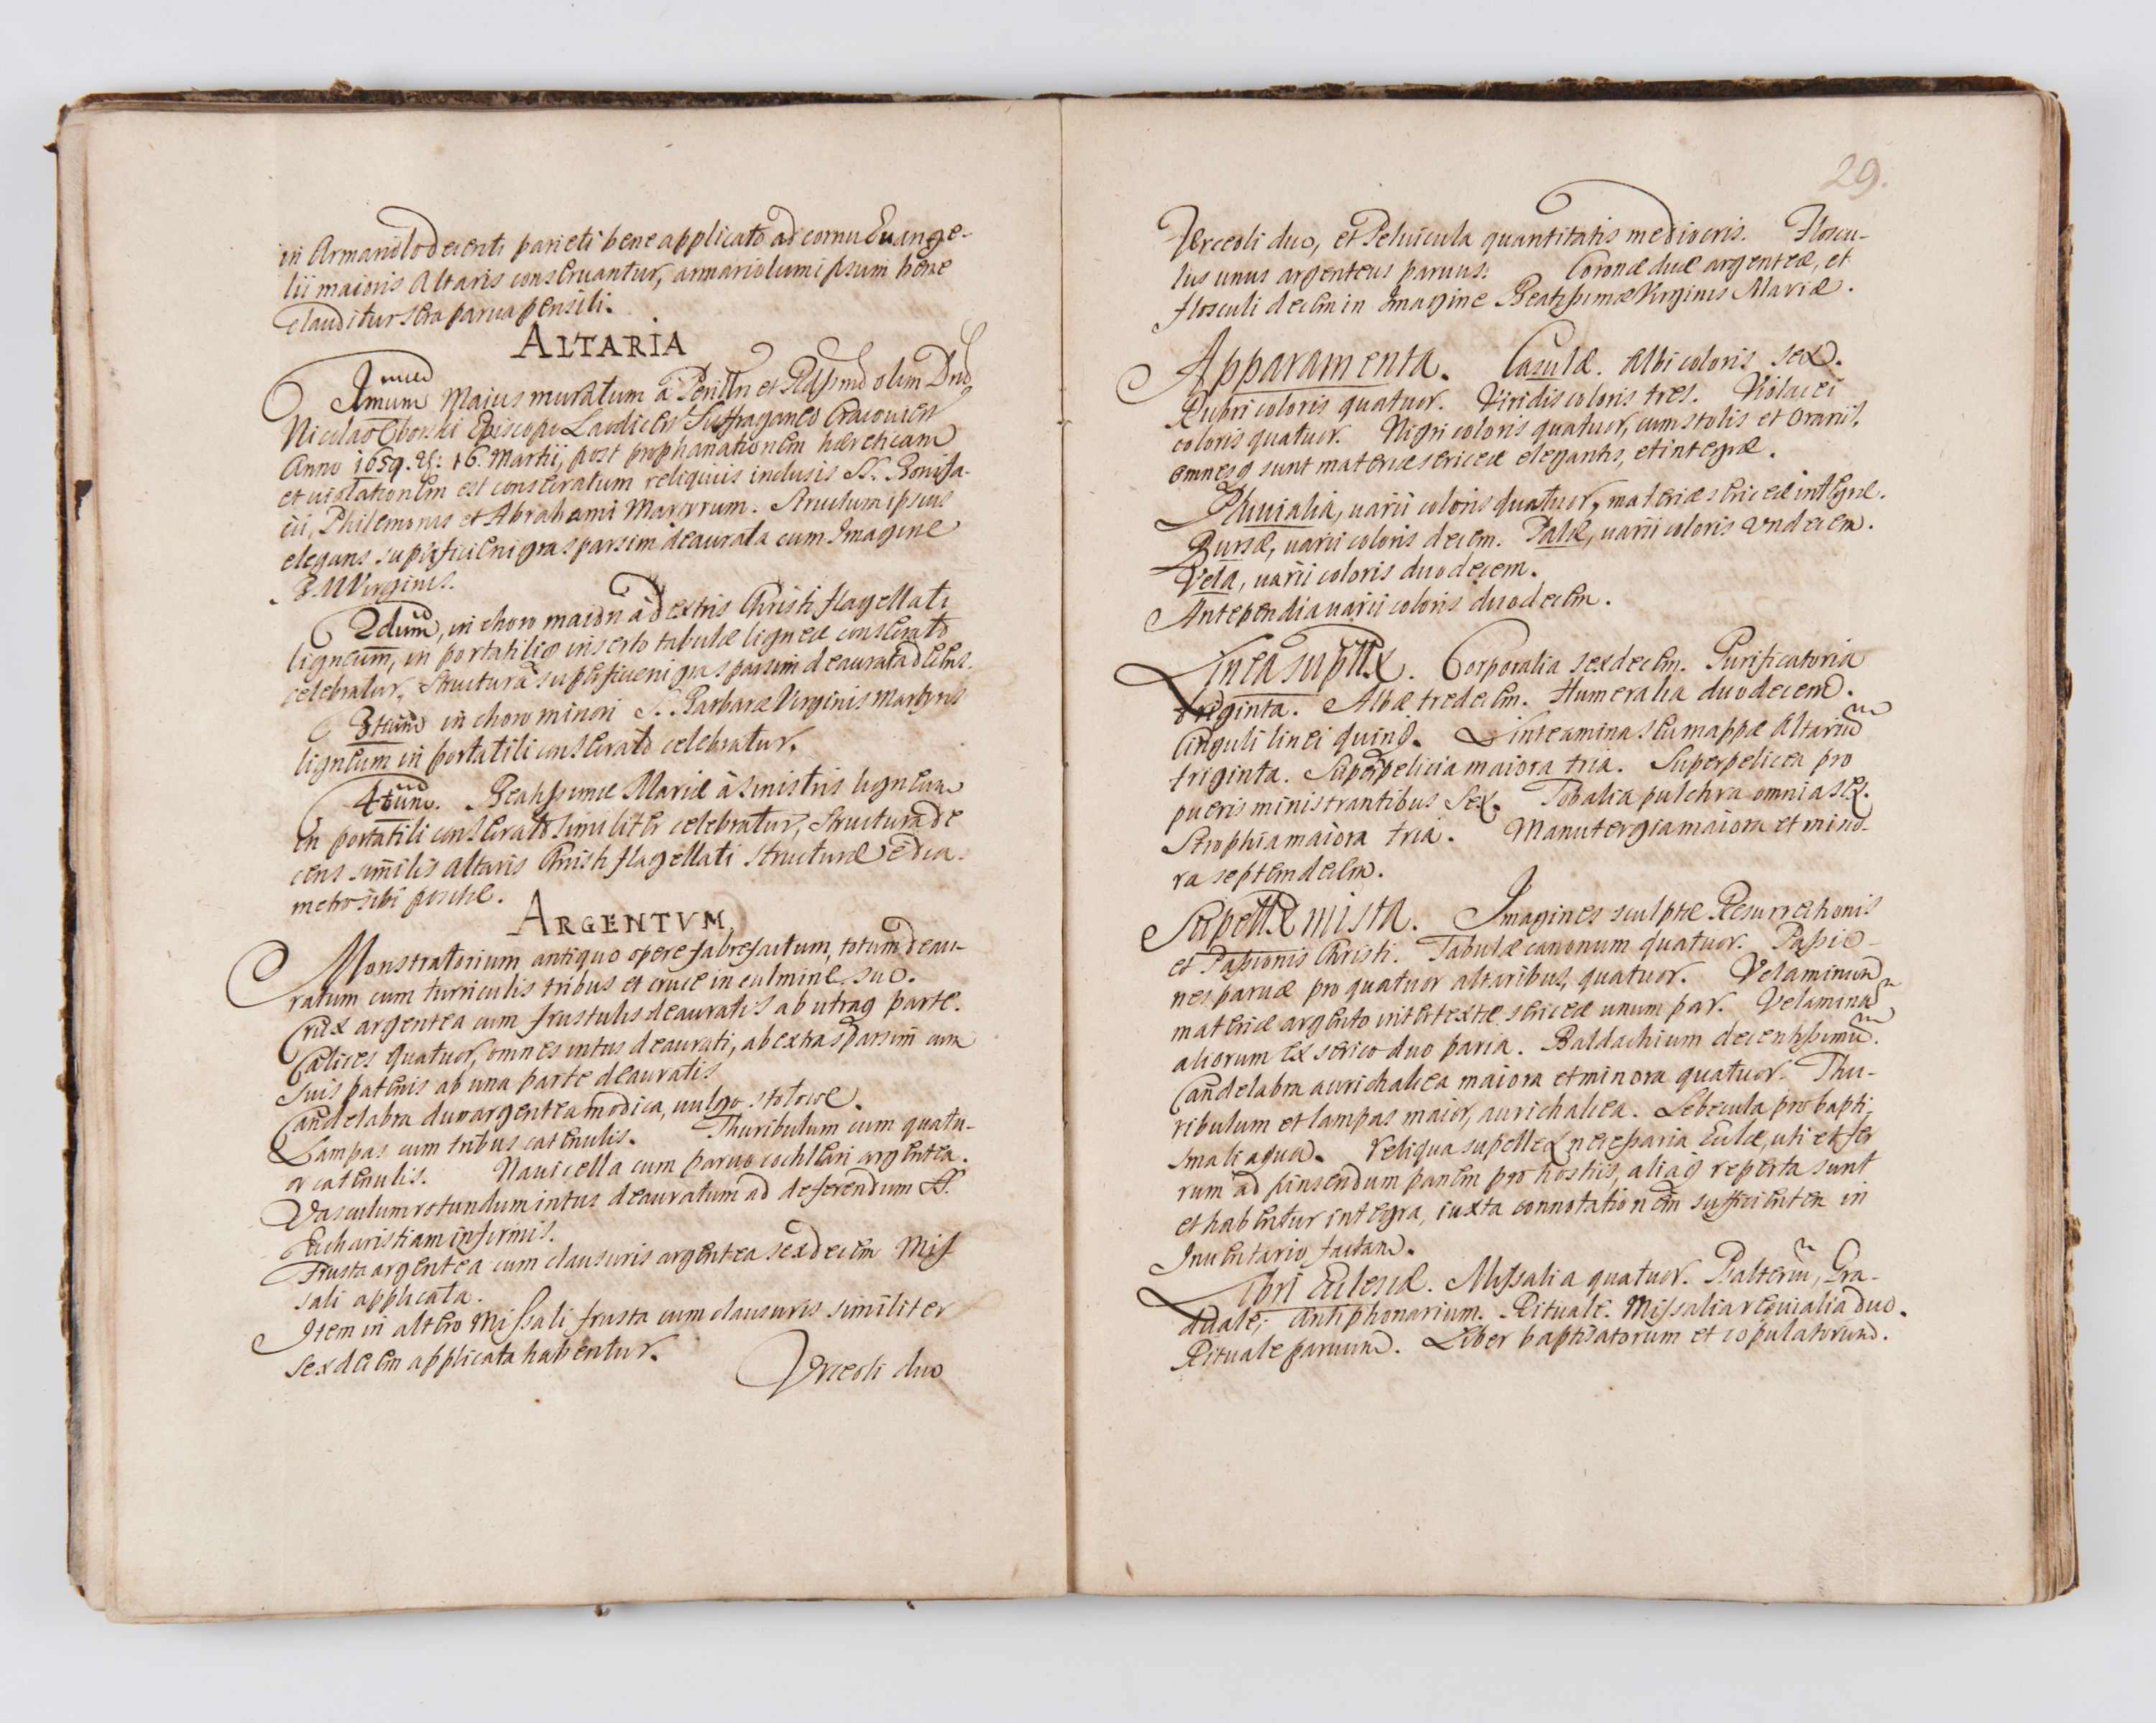 in Armariolo decenti parieti bene applicato ad cornu Euange-
lii maioris Altaris conseruantur, armariolum ipsum bene
clauditur sera parua pensili.
ALTARIA
Imum Maius muratum à Perillri et Rdssimo olim Dno
Nicolao Oborski Episcopo Laodicen Suffraganeo Cracouien
Anno 1659. d: 16. Martii, post prophanationem hæreticam
et uiolationem est consecratum reliquiis inclusis SS. Bonifa-
cii, Philemonis et Abrahami Martyrum. Structura ipsius
elegans superficie nigra sparsim deaurata cum Imagine
B M Virginis.
2dum, in choro maiori à dextris Christi flagellati
ligneum, in portatili inserto tabulæ ligneæ consecrato
celebratur, Structura superficie nigra sparsim deaurata decens.
3tium in choro minori S. Barbaræ Virginis Martyris
ligneum in portatili consecrato celebratur.
4tum. Beatissimæ Mariæ à sinistris ligneum
in portatili consecrato similiter celebratur, Structura de
cens similis altaris Christi flagellati structuræ è dia-
metro sibi positæ.
ARGENTVM
Monstratorium antiquo opere fabrefactum, totum deau-
ratum cum turriculis tribus et cruce in culmine suo.
Crux argentea cum frustulis deauratis ab utraq parte.
Calices quatuor, omnes intus deaurati, ab extra sparsim cum
suis patenis ab una parte deauratis
Candelabra duo argentea modica, uulgo stołowe.
Lampas cum tribus catenulis. Thuribulum cum quatu-
or catenulis. Nauicella cum paruo cochleari argentea.
Vasculum rotundum intus deauratum ad deferendum SS.
Eucharistiam infirmis.
Frusta argentea cum clausuris argentea sexdecim Mis
sali applicata.
Item in altero Missali frusta cum clausuris similiter
sexdecim applicata habentur.
Vrceoli duo
29.
Vrceoli duo, et Peluicula quantitatis mediocris. Floscu-
lus unus argenteus paruus. Coronæ duæ argenteæ, et
flosculi decem in Imagine Beatissimæ Virginis Mariæ.
Apparamenta. Casulæ. Albi coloris sex.
Rubri coloris quatuor. Viridis coloris tres. Violacei
coloris quatuor. Nigri coloris quatuor, cum stolis et oraris.
omnesq sunt materiæ sericeæ elegantis, et integræ.
Pluuialia, uarii coloris quatuor, materiæ sericeæ integræ.
Bursæ, uarii coloris decem. Palæ, uarii coloris vndecem.
Vela, uarii coloris duodecem.
Antependia uarii coloris duodecem.
Linea supellex. Corporalia sexdecem. Purificatoria
triginta. Albæ tredecem. Humeralia duodecem.
Cinguli linei quinq. Linteamina seu mappæ Altarium
triginta. Superpelicia maiora tria. Superpelicea pro
pueris ministrantibus Sex. Tobalia pulchra omnia sex.
Strophia maiora tria. Manutergia maiora et mino-
ra septemdecem.
Supellex mista. Imagines sculptæ Resurrectionis
et Passionis Christi. Tabulæ canonum quatuor. Passio-
nes paruæ pro quatuor altaribus, quatuor. Velaminum
materiæ argento intertextæ sericeæ unum par. Velaminum
aliorum ex serico duo paria. Baldachium decentissimum.
Candelabra aurichalcea maiora et minora quatuor. Thu-
ribulum et lampas maior, aurichalcea. Lebecula pro bapti-
smali aqua. Reliqua supellex necessaria Ecclæ, uti et fer
rum ad pinsendum panem pro hostiis, aliaq reperta sunt
et habentur integra, iuxta connotationem sufficientem in
Inuentario factam.
Libri Ecclesiæ. Missalia quatuor. Psalterium, Gra-
duale, Antiphonarium. Rituale. Missalia requialia duo.
Rituale paruum. Liber baptisatorum et copulatorum.